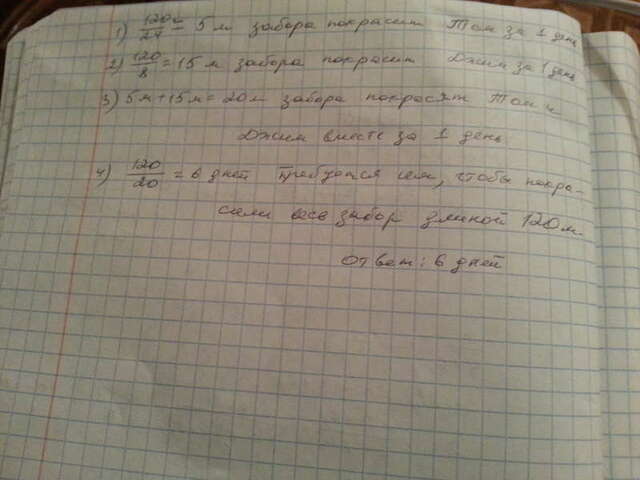 1) 120/24 = 5 м забора покрасит Том за 1 день
2) 120/8 = 15 м забора покрасит Джим за 1 день
3) 5м + 15м = 20м забора покрасят Том и
Джим вместе за 1 день
4) 120/20 = 6 дней требуется им, чтобы покра-
сили весь забор длиной 120м.
Ответ: 6 дней